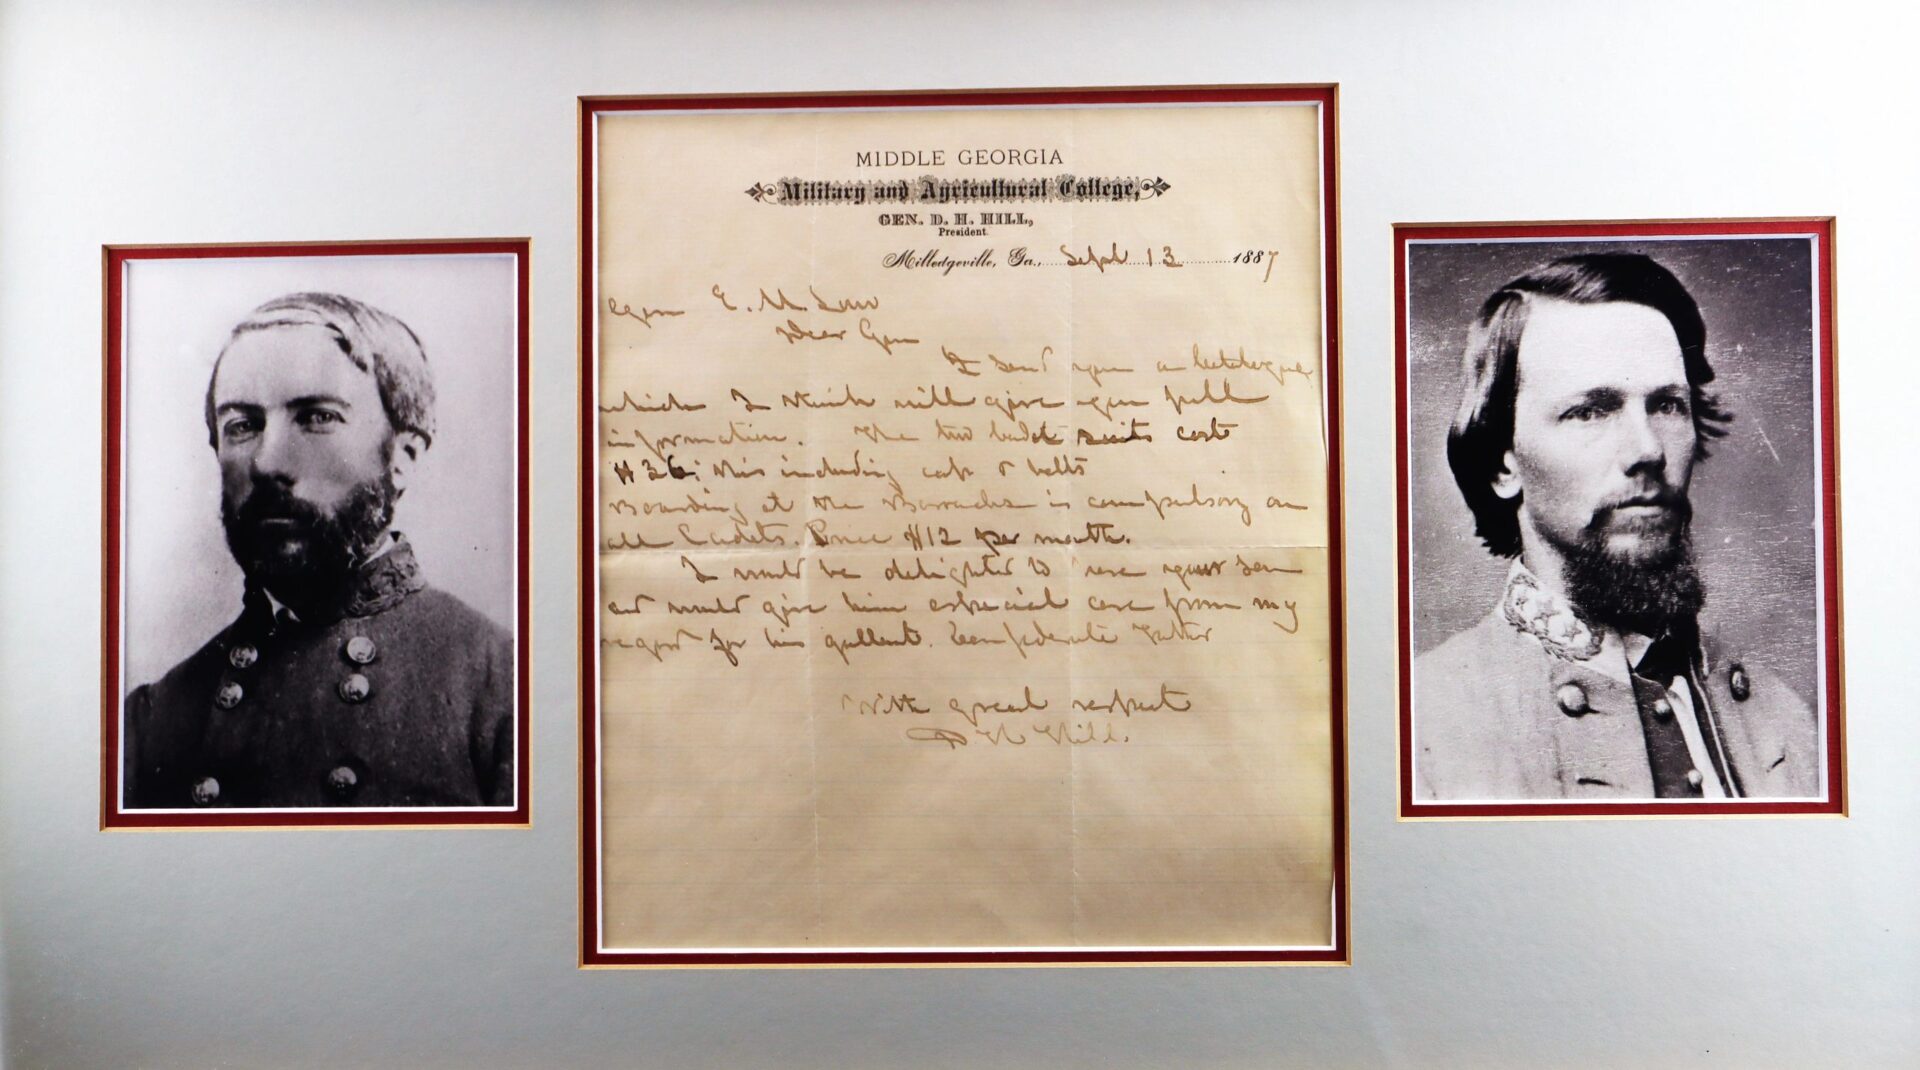 MIDDLE GEORGIA
Military and Agricultural College,
GEN. D. H. HILL,
President.
Milledgeville, Ga., Sept 13 1887
Gen E. M. Law
Dear Gen
I send you a Catalogue
which I think will give you full
information. The two Cadet suits cost
$36. this including cap & belts
Boarding at the Barracks is compulsory on
all Cadets. Price $12 per month.
I would be delighted to have your son
and would give him especial care from my
regard for his gallant Confederate Father
With great respect
D H Hill.